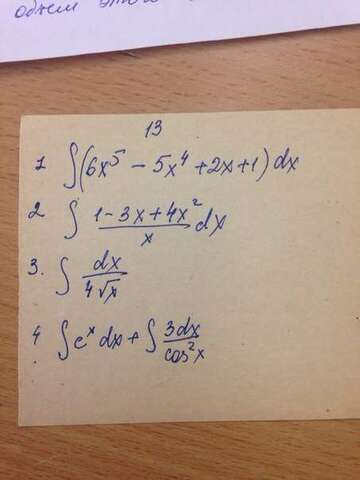 объем этого
13
1 ∫(6x⁵ - 5x⁴ + 2x + 1) dx
2 ∫ (1 - 3x + 4x²)/x dx
3. ∫ dx/(4√x)
4 ∫ eˣ dx + ∫ 3dx/cos²x